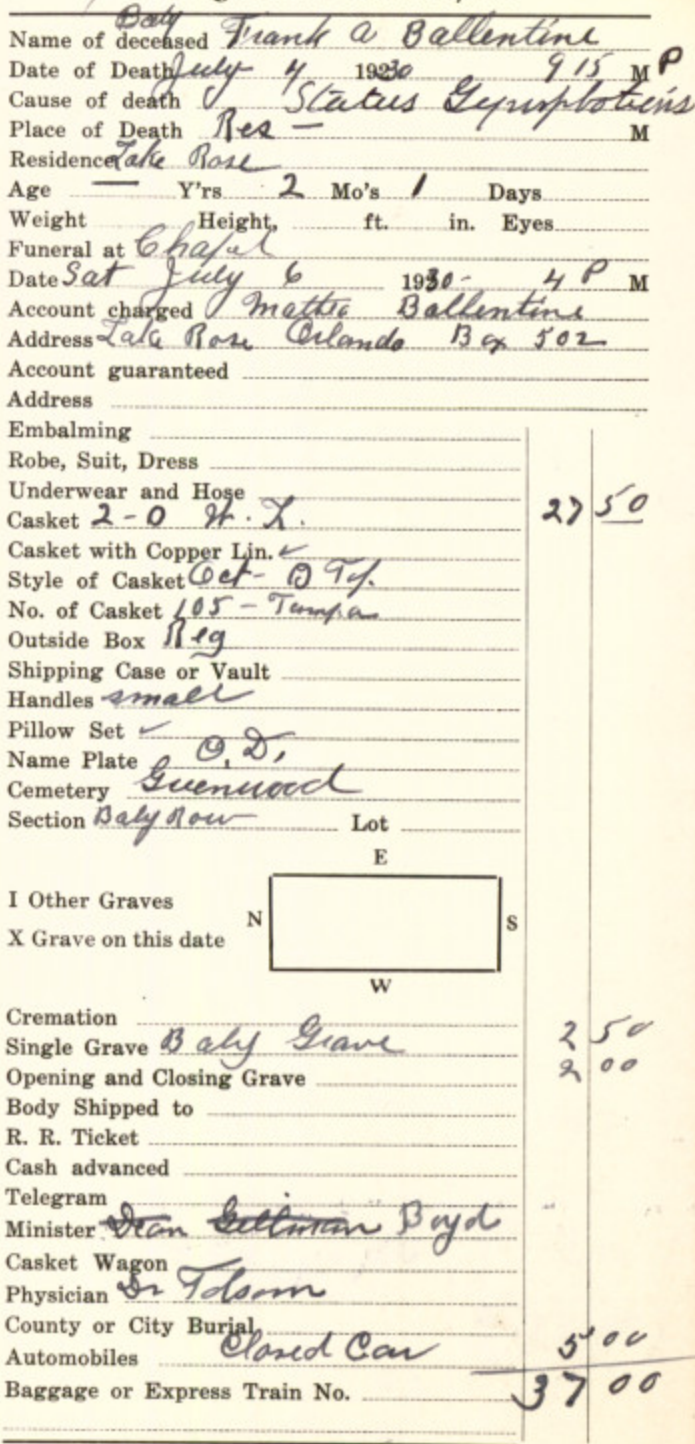 Baby
Name of deceased Frank A Ballentine
Date of Death July 4 1930 9 15 M P
Cause of death Status Lymphaticus
Place of Death Res - M
Residence Lake Rose
Age — Y'rs 2 Mo's 1 Days
Weight Height, ft. in. Eyes
Funeral at Chapel
Date Sat July 6 1930 - 4 P M
Account charged Mattie Ballentine
Address Lake Rose Orlando Box 502
Account guaranteed
Address
Embalming
Robe, Suit, Dress
Underwear and Hose
Casket 2-0 27 50
Casket with Copper Lin. ✓
Style of Casket Oct-
No. of Casket 105 - Tampa
Outside Box Reg
Shipping Case or Vault
Handles small
Pillow Set ✓
Name Plate O.D.
Cemetery Greenwood
Section Baby Row Lot
E
I Other Graves
N S
X Grave on this date
W
Cremation
Single Grave Baby Grave 2 50
Opening and Closing Grave 2 00
Body Shipped to
R. R. Ticket
Cash advanced
Telegram
Minister Dean Boyd
Casket Wagon
Physician Dr Folsom
County or City Burial
Automobiles Closed Car 5 00
Baggage or Express Train No. 37 00